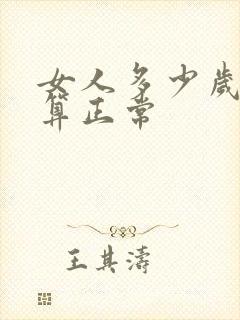 女人多少歲
算正常
王其濤